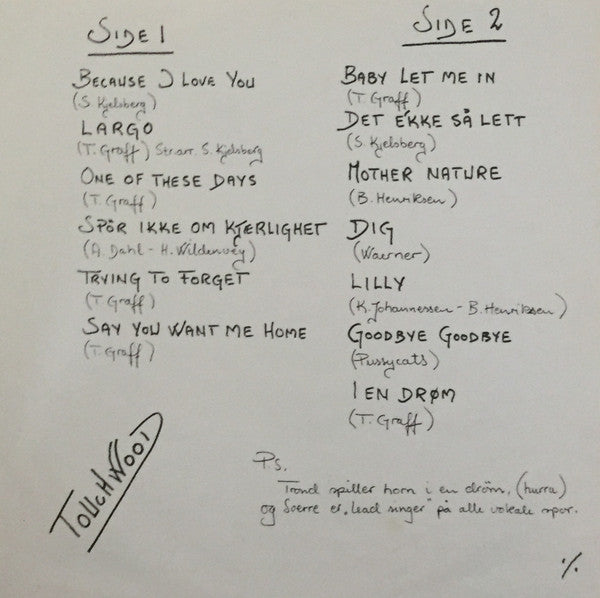 SIDE 1
BECAUSE I LOVE YOU
(S. Kjelsberg)
LARGO
(T. Graff) Str.arr. S. Kjelsberg
ONE OF THESE DAYS
(T. Graff)
SPÖR IKKE OM KJÆRLIGHET
(A. Dahl - H. Wildenvey)
TRYING TO FORGET
(T. Graff)
SAY YOU WANT ME HOME
(T. Graff)
SIDE 2
BABY LET ME IN
(T. Graff)
DET E'KKE SÅ LETT
(S. Kjelsberg)
MOTHER NATURE
(B. Henriksen)
DIG
(Waerner)
LILLY
(K. Johannessen - B. Henriksen)
GOODBYE GOODBYE
(Pussycats)
I EN DRØM
(T. Graff)
TOUCHWOOD
Ps.
Trond spiller horn i en dröm, (hurra)
og Sverre er „lead singer" på alle vokale spor.
%